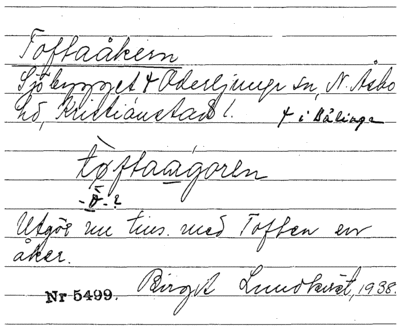 Toftaåkern
Sjöbygget 4 Oderljunga sn, N. Åsbo
hd, Kristianstads l. 4 i Bålinge
tøftaagoren
-ō-?
Utgör nu tills. med Toften en
åker.
Nr 5499. Birgit Lundkvist, 1938.